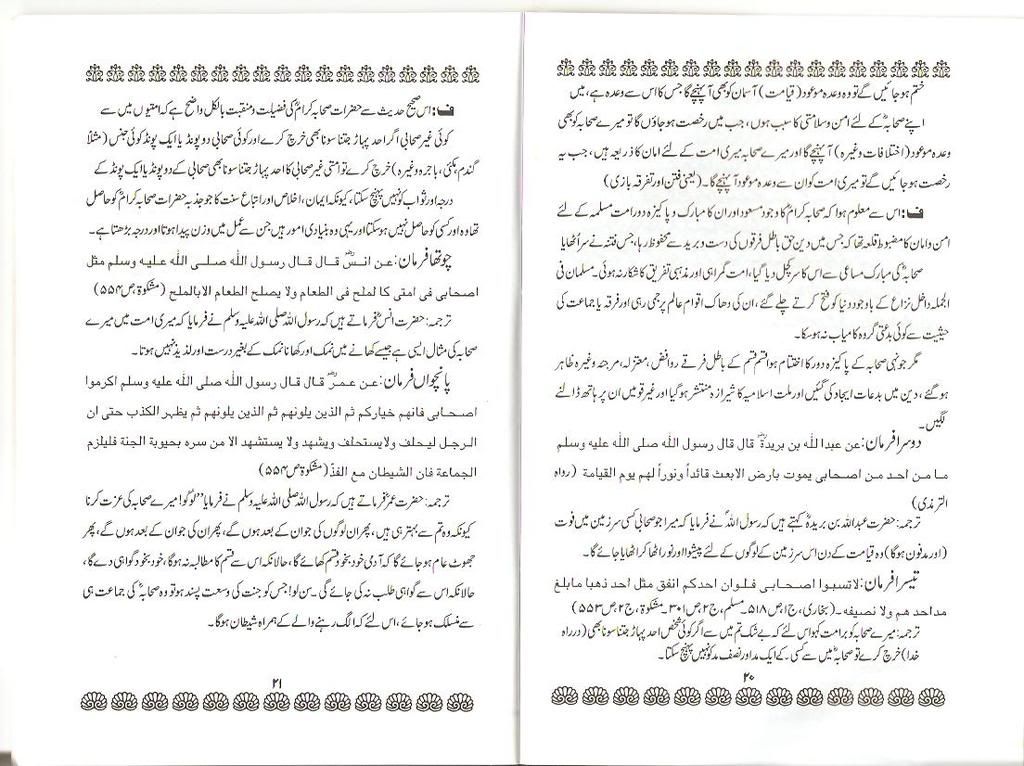 ختم ہوجائیں گے تو وہ وعدہ موعود (قیامت) آسمان کو بھی آپہنچے گا جس کا اس سے وعدہ ہے، میں
اپنے صحابہؓ کے لئے امن وسلامتی کا سبب ہوں، جب میں رخصت ہوجاؤں گا تو میرے صحابہ کو بھی
وعدہ موعود (اختلافات وغیرہ) آپہنچے گا اور میرے صحابہ میری امت کے لئے امان کا ذریعہ ہیں، جب یہ
رخصت ہوجائیں گے تو میری امت کو ان سے وعدہ موعود آپہنچے گا۔ (یعنی فتن اور تفرقہ بازی)
ف: اس سے معلوم ہوا کہ صحابہ کرامؓ کا وجود مسعود اور ان کا مبارک وپاکیزہ دور امت مسلمہ کے لئے
امن وامان کا مضبوط قلعہ تھا کہ جس میں دین حق باطل فرقوں کی دست وبرید سے محفوظ رہا، جس فتنہ نے سر اُٹھایا
صحابہؓ کی مبارک مساعی سے اس کا سر کچل دیا گیا، امت گمراہی اور مذہبی تفریق کا شکار نہ ہوئی۔ مسلمان فی
الجملہ داخلی نزاع کے باوجود دنیا کو فتح کرتے چلے گئے، ان کی دھاک اقوام عالم پر جمی رہی اور فرقہ یا جماعت کی
حیثیت سے کوئی بدعتی گروہ کامیاب نہ ہوسکا۔
مگر جونہی صحابہ کے پاکیزہ دور کا اختتام ہوا قسم قسم کے باطل فرقے روافض، معتزلہ، مرجئہ وغیرہ ظاہر
ہوگئے، دین میں بدعات ایجاد کی گئیں اور ملت اسلامیہ کا شیرازہ منتشر ہوگیا اور غیر قومیں ان پر ہاتھ ڈالنے
لگیں۔
دوسرا فرمان: عن عبدا للہ بن بریدۃؓ قال قال رسول اللہ صلی اللہ علیہ وسلم
ما من احد من اصحابی یموت بارض الابعث قائداً ونوراً لہم یوم القیامة (رواہ
الترمذی)
ترجمہ: حضرت عبداللہ بن بریدہؓ کہتے ہیں کہ رسول اللہؐ نے فرمایا کہ میرا جو صحابی کسی سرزمین میں فوت
(اور مدفون ہوگا) وہ قیامت کے دن اس سرزمین کے لوگوں کے لئے پیشوا اور نور اٹھا کر اٹھایا جائے گا۔
تیسرا فرمان: لاتسبوا اصحابی فلوان احدکم انفق مثل احد ذھبا مابلغ
مداحد ھم ولا نصیفہ۔ (بخاری، ج۱ص۵۱۸۔ مسلم، ج۲ص۳۰۱۔ مشکوٰۃ، ج۲ص۵۵۳)
ترجمہ: میرے صحابہ کو برا مت کہو اس لئے کہ بے شک تم میں سے اگر کوئی شخص احد پہاڑ جتنا سونا بھی (در راہ
خدا) خرچ کرے تو صحابہؓ میں سے کسی کے ایک مد اور نصف مد کو نہیں پہنچ سکتا۔
۲۰
ف: اس صحیح حدیث سے حضرات صحابہ کرامؓ کی فضیلت ومنقبت بالکل واضح ہے کہ امتیوں میں سے
کوئی غیر صحابی اگر احد پہاڑ جتنا سونا بھی خرچ کرے اور کوئی صحابی دو پونڈ یا ایک پونڈ کوئی جنس (مثلاً
گندم، مکئی، باجرہ وغیرہ) خرچ کرے تو امتی غیر صحابی کا احد پہاڑ جتنا سونا بھی صحابی کے دو پونڈ یا ایک پونڈ کے
درجہ اور ثواب کو نہیں پہنچ سکتا، کیونکہ ایمان، اخلاص اور اتباع سنت کا جو جذبہ حضرات صحابہ کرامؓ کو حاصل
تھا وہ اور کسی کو حاصل نہیں ہوسکتا اور یہی وہ بنیادی امور ہیں جن سے عمل میں وزن پیدا ہوتا اور درجہ بڑھتا ہے۔
چوتھا فرمان: عن انسؓ قال قال رسول اللہ صلی اللہ علیہ وسلم مثل
اصحابی فی امتی کا لملح فی الطعام ولا یصلح الطعام الابالملح (مشکوٰۃ ص۵۵۴)
ترجمہ: حضرت انسؓ فرماتے ہیں کہ رسول اللہ صلی اللہ علیہ وسلم نے فرمایا کہ میری امت میں میرے
صحابہ کی مثال ایسی ہے جیسے کھانے میں نمک اور کھانا نمک کے بغیر درست اور لذیذ نہیں ہوتا۔
پانچواں فرمان: عن عمرؓ قال قال رسول اللہ صلی اللہ علیہ وسلم اکرموا
اصحابی فانہم خیارکم ثم الذین یلونہم ثم الذین یلونہم ثم یظہر الکذب حتی ان
الرجل لیحلف ولایستحلف ویشہد ولا یستشہد الا من سرہ بحبوبة الجنة فلیلزم
الجماعة فان الشیطان مع الفذّ (مشکوٰۃ ص۵۵۴)
ترجمہ: حضرت عمرؓ فرماتے ہیں کہ رسول اللہ صلی اللہ علیہ وسلم نے فرمایا ”لوگو! میرے صحابہ کی عزت کرنا
کیونکہ وہ تم سے بہتر ہی ہیں، پھر ان لوگوں کی جو ان کے بعد ہوں گے، پھر ان کی جو ان کے بعد ہوں گے، پھر
جھوٹ عام ہوجائے گا کہ آدمی خود بخود قسم کھائے گا، حالانکہ اس سے قسم کا مطالبہ نہ ہوگا، خود بخود گواہی دے گا،
حالانکہ اس سے گواہی طلب نہ کی جائے گی۔ سن لو! جس کو جنت کی وسعت پسند ہو تو وہ صحابہؓ کی جماعت ہی
سے منسلک ہوجائے، اس لئے کہ الگ رہنے والے کے ہمراہ شیطان ہوگا۔
۲۱